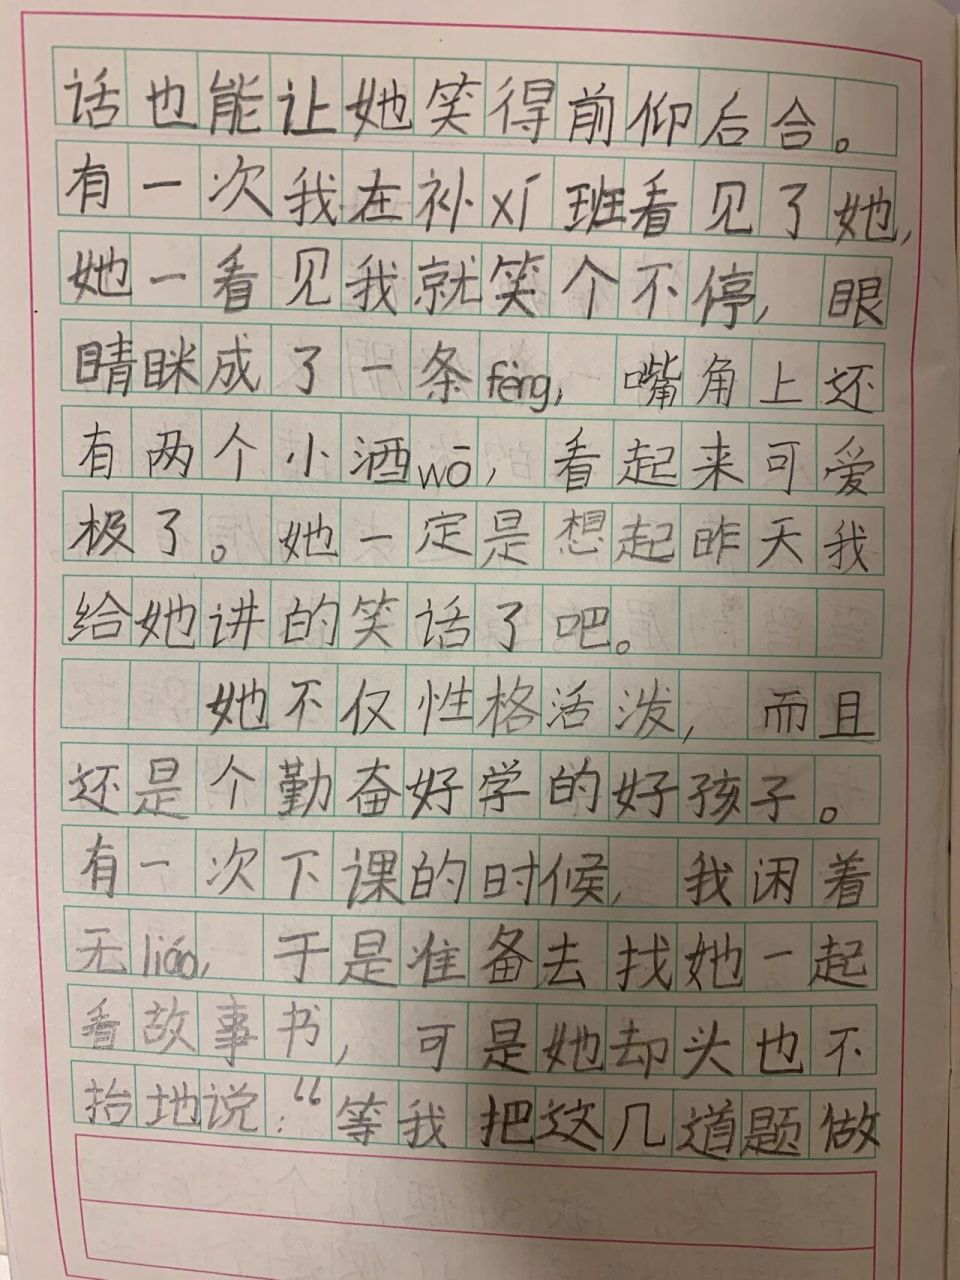 话也能让她笑得前仰后合。
有一次我在补xí班看见了她,
她一看见我就笑个不停,眼
睛眯成了一条fèng,嘴角上还
有两个小酒wō,看起来可爱
极了。她一定是想起昨天我
给她讲的笑话了吧。
她不仅性格活泼,而且
还是个勤奋好学的好孩子。
有一次下课的时候,我闲着
无liáo,于是准备去找她一起
看故事书,可是她却头也不
抬地说:“等我把这几道题做